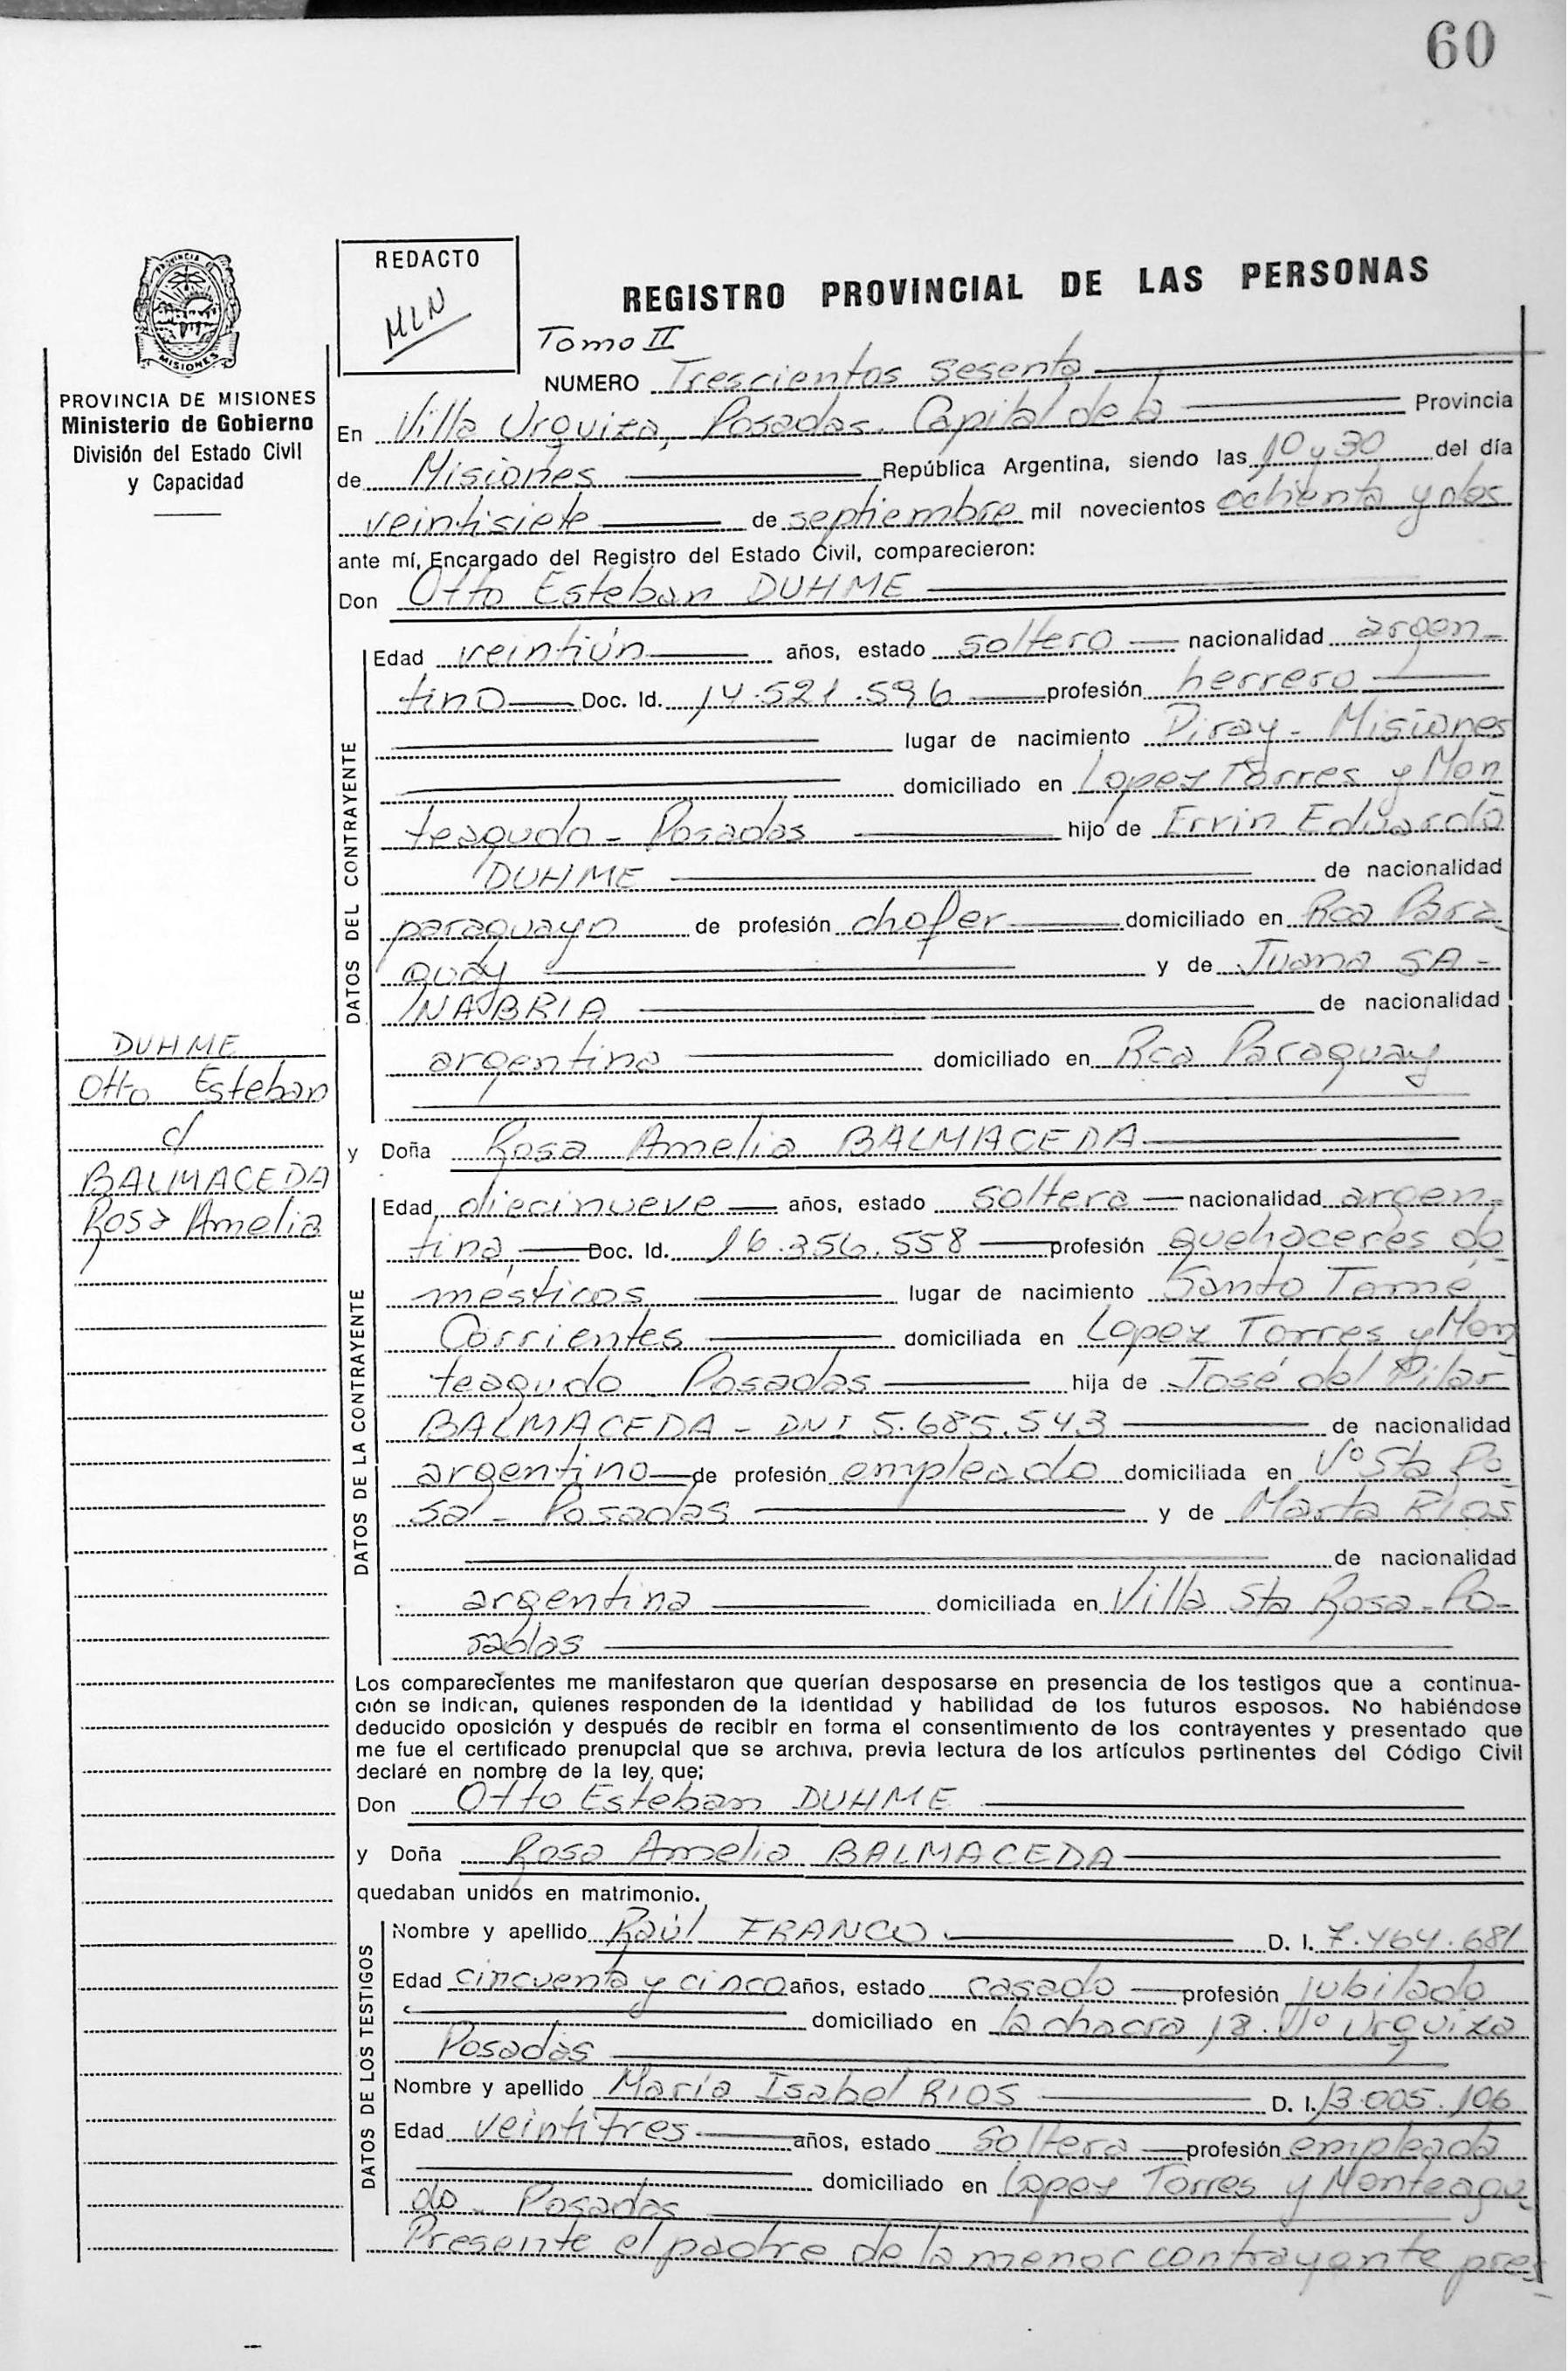 60
PROVINCIA DE
MISIONES
PROVINCIA DE MISIONES
Ministerio de Gobierno
División del Estado Civil
y Capacidad
REDACTO
MLN
REGISTRO PROVINCIAL DE LAS PERSONAS
Tomo II
NUMERO Trescientos sesenta
En Villa Urquiza, Posadas. Capital de la Provincia
de Misiones República Argentina, siendo las 10 y 30 del día
veintisiete de septiembre mil novecientos ochenta y dos
ante mí, Encargado del Registro del Estado Civil, comparecieron:
Don Otto Esteban DUHME
DATOS DEL CONTRAYENTE
Edad veintiún años, estado soltero nacionalidad argen-
tino Doc. Id. 14.521.596 profesión herrero
lugar de nacimiento Piray - Misiones
domiciliado en Lopez Torres y Mon
teagudo - Posadas hijo de Ervin Eduardo
DUHME de nacionalidad
paraguayo de profesión chofer domiciliado en Rca Para
guay y de Juana SA-
NABRIA de nacionalidad
argentina domiciliado en Rca Paraguay
DUHME
Otto Esteban
c/
BALMACEDA
Rosa Amelia
y Doña Rosa Amelia BALMACEDA
DATOS DE LA CONTRAYENTE
Edad diecinueve años, estado soltera nacionalidad argen-
tina, Doc. Id. 16.356.558 profesión quehaceres do-
mésticos lugar de nacimiento Santo Tomé
Corrientes domiciliada en Lopez Torres y Mon
teagudo - Posadas hija de José del Pilar
BALMACEDA - DNI 5.685.543 de nacionalidad
argentino de profesión empleado domiciliada en Vº Sta Ro-
sa - Posadas y de Marta RIOS
de nacionalidad
argentina domiciliada en Villa Sta Rosa - Po-
sadas
Los comparecientes me manifestaron que querían desposarse en presencia de los testigos que a continua-
ción se indican, quienes responden de la identidad y habilidad de los futuros esposos. No habiéndose
deducido oposición y después de recibir en forma el consentimiento de los contrayentes y presentado que
me fue el certificado prenupcial que se archiva, previa lectura de los artículos pertinentes del Código Civil
declaré en nombre de la ley, que;
Don Otto Esteban DUHME
y Doña Rosa Amelia BALMACEDA
quedaban unidos en matrimonio.
DATOS DE LOS TESTIGOS
Nombre y apellido Raúl FRANCO. D. I. 7.464.681
Edad cincuenta y cinco años, estado casado profesión jubilado
domiciliado en la chacra 18. Vº Urquiza
Posadas
Nombre y apellido María Isabel RIOS D. I. 13.005.106
Edad veintitres años, estado soltera profesión empleada
domiciliado en Lopez Torres y Monteagu-
do - Posadas
Presente el padre de la menor contrayente pres-